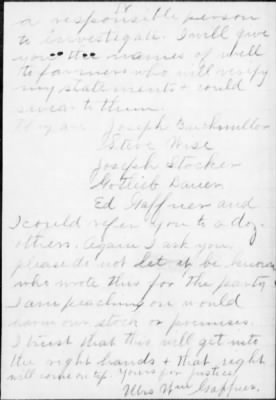 a responsible person
to investigate. I will give
you the names of well
to farmers who will verify
my statements & could
swear to them.
They are Joseph
Steve Wise
Joseph Stocker
Gotlieb Bauer
Ed Gaffner and
I could refer you to a doz.
others. Again I ask you
please do not let it be known
who wrote this for the party
I am peaching on would
harm our stock or premises.
I trust that this will get into
the right hands & that right
will come on top. Yours for justice
Mrs Wm Gaffner.